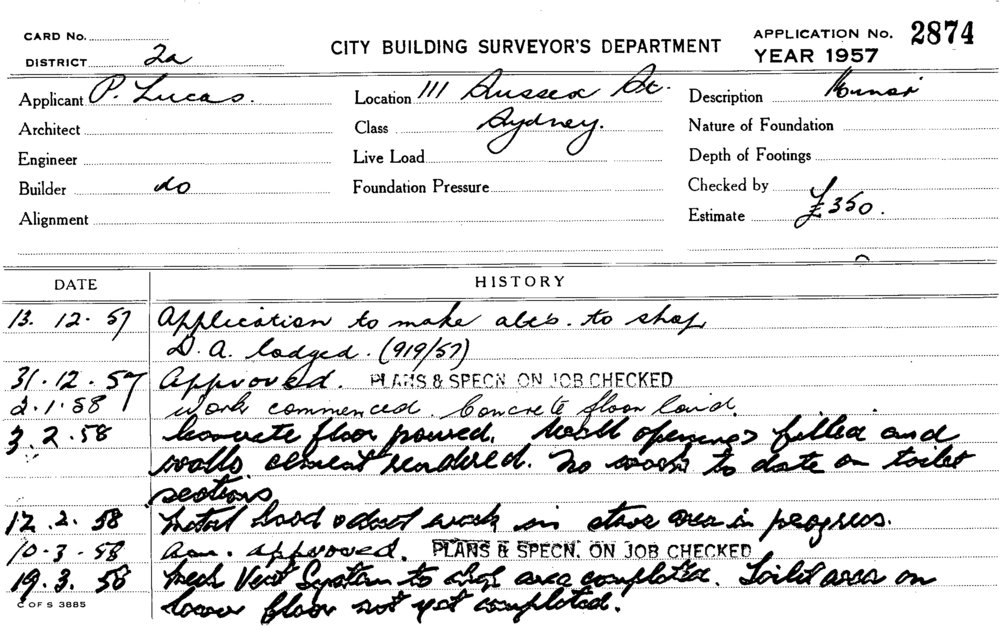 CARD No.
DISTRICT 2a
CITY BUILDING SURVEYOR'S DEPARTMENT
APPLICATION No. 2874
YEAR 1957
Applicant P. Lucas.
Location 111 Sussex St.
Description Minor
Architect
Class Sydney.
Nature of Foundation
Engineer
Live Load
Depth of Footings
Builder do
Foundation Pressure
Checked by
Alignment
Estimate £350.
DATE HISTORY
13. 12. 57 Application to make alt's. to shop
D.A. lodged. (919/57)
31. 12. 57 Approved. PLANS & SPECN. ON JOB CHECKED
2. 1. 58 Work commenced. Concrete floor laid.
3. 2. 58 Concrete floor poured. Wall openings filled and
walls cement rendered. No work to date on toilet
sections
12. 2. 58 Metal hood & duct work in stove area in progress.
10. 3. 58 approved. PLANS & SPECN. ON JOB CHECKED
19. 3. 58 Mech Vent System to shop area completed. Toilet area on
lower floor not yet completed.
C OF S 3885